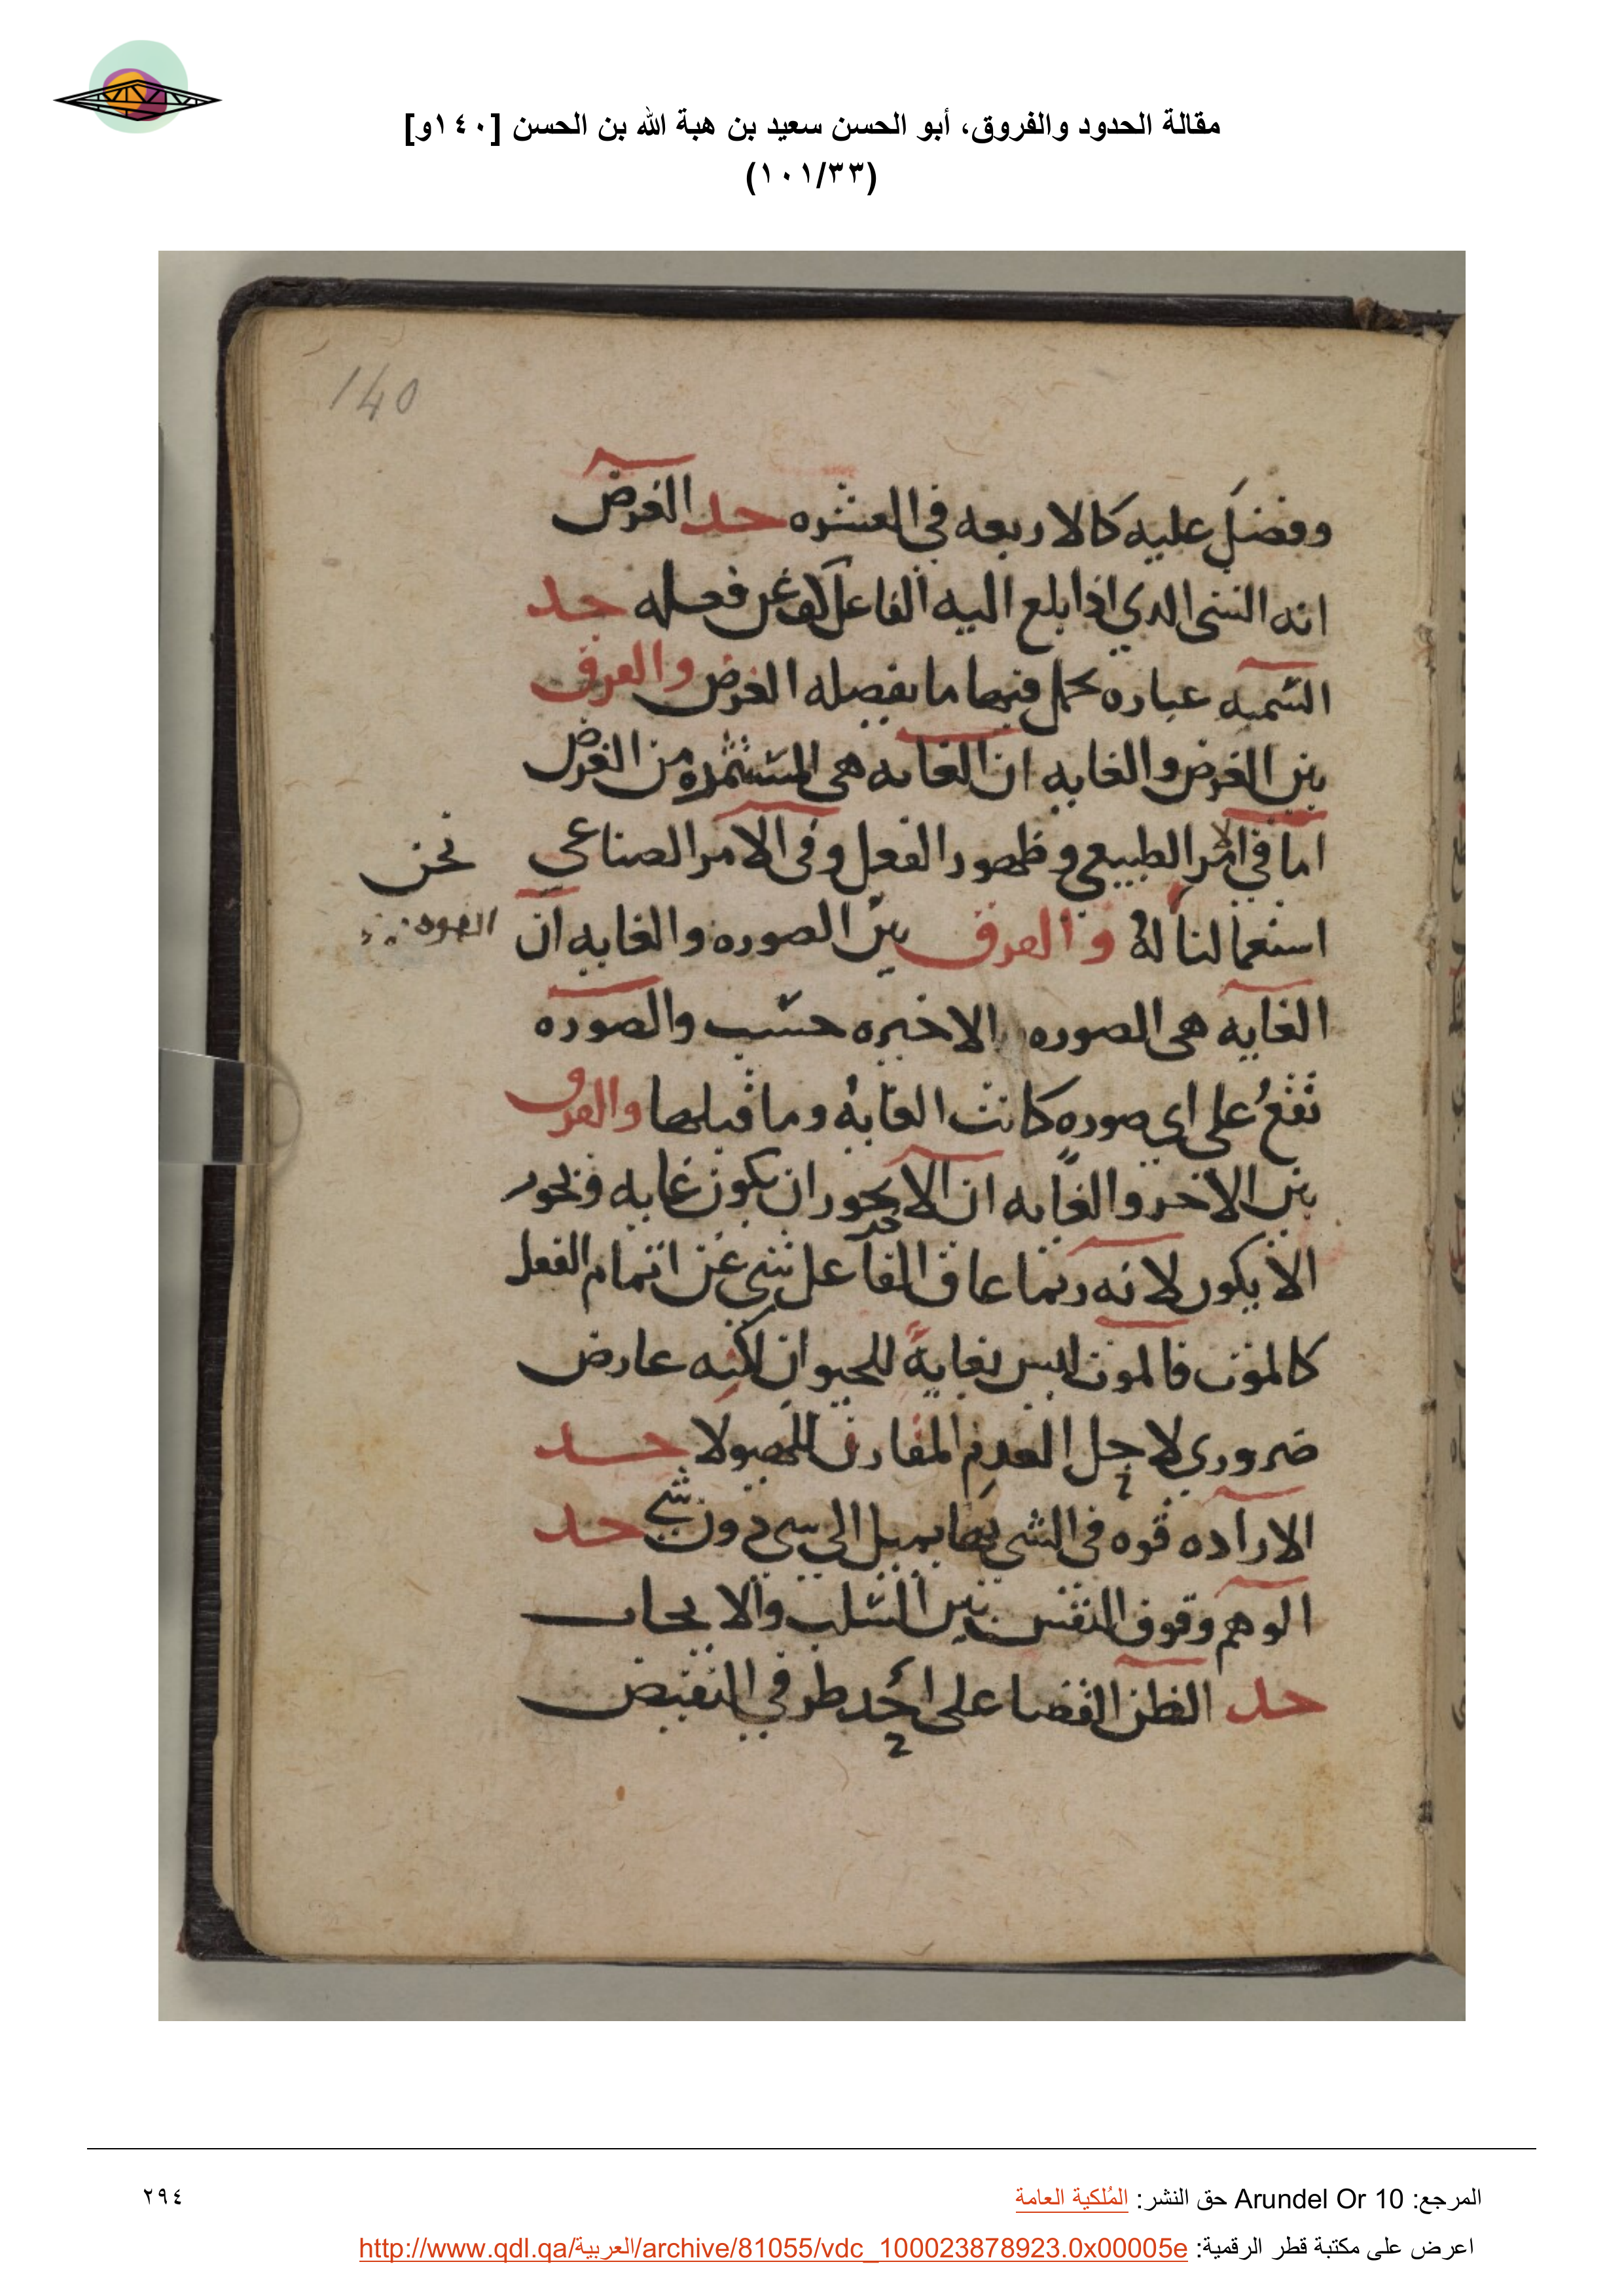 مقالة الحدود والفروق، أبو الحسن سعيد بن هبة الله بن الحسن [١٤٠و]
(١٠١/٣٣)
140
وفضل عليه كالاربعه في العشره حد الغرض
انه الشي الدي اذا بلغ اليه الفاعل كف عن فعله حد
التسميه عباره يحمل فيها ما يفصله الغرض والفرق
بين الغرض والغايه ان الغايه هي المستثمره من الغرض
اما في الامر الطبيعي فظهور الفعل وفي الامر الصناعي
نحن
استعمالنا له والفرق بين الصوره والغايه ان
الغايه هي الصوره الاخيره حسب والصوره
تقع على اي صوره كانت الغايه وما قبلها والفرق
بين الاخر والغايه ان الاخر يجوز ان يكون غايه ويجوز
الا يكون لانه ربما عاق الفاعل شي عن اتمام الفعل
كالموت فالموت ليس بغاية للحيوان لكنه عارض
ضروري لاجل العدم المقارن للهيولا حد
الاراده قوه في الشي بها يميل الى شي دون شي حد
الوهم وقوف النفس بين السلب والايجاب
حد الظن القضا على احد طرفي النقيض
المرجع: Arundel Or 10 حق النشر: المُلكية العامة
٢٩٤
اعرض على مكتبة قطر الرقمية: http://www.qdl.qa/العربية/archive/81055/vdc_100023878923.0x00005e